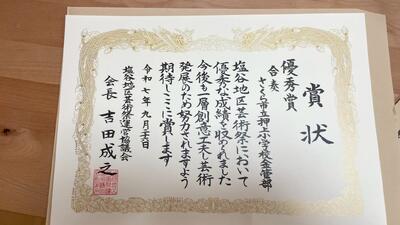 賞状
優秀賞
合奏
さくら市立押上小学校金管部
塩谷地区芸術祭において
優秀な成績を収められました
今後も一層創意工夫し芸術
発展のため努力されますよう
期待しここに賞します
令和七年九月
塩谷地区芸術祭運営協議会
会長 吉田成之